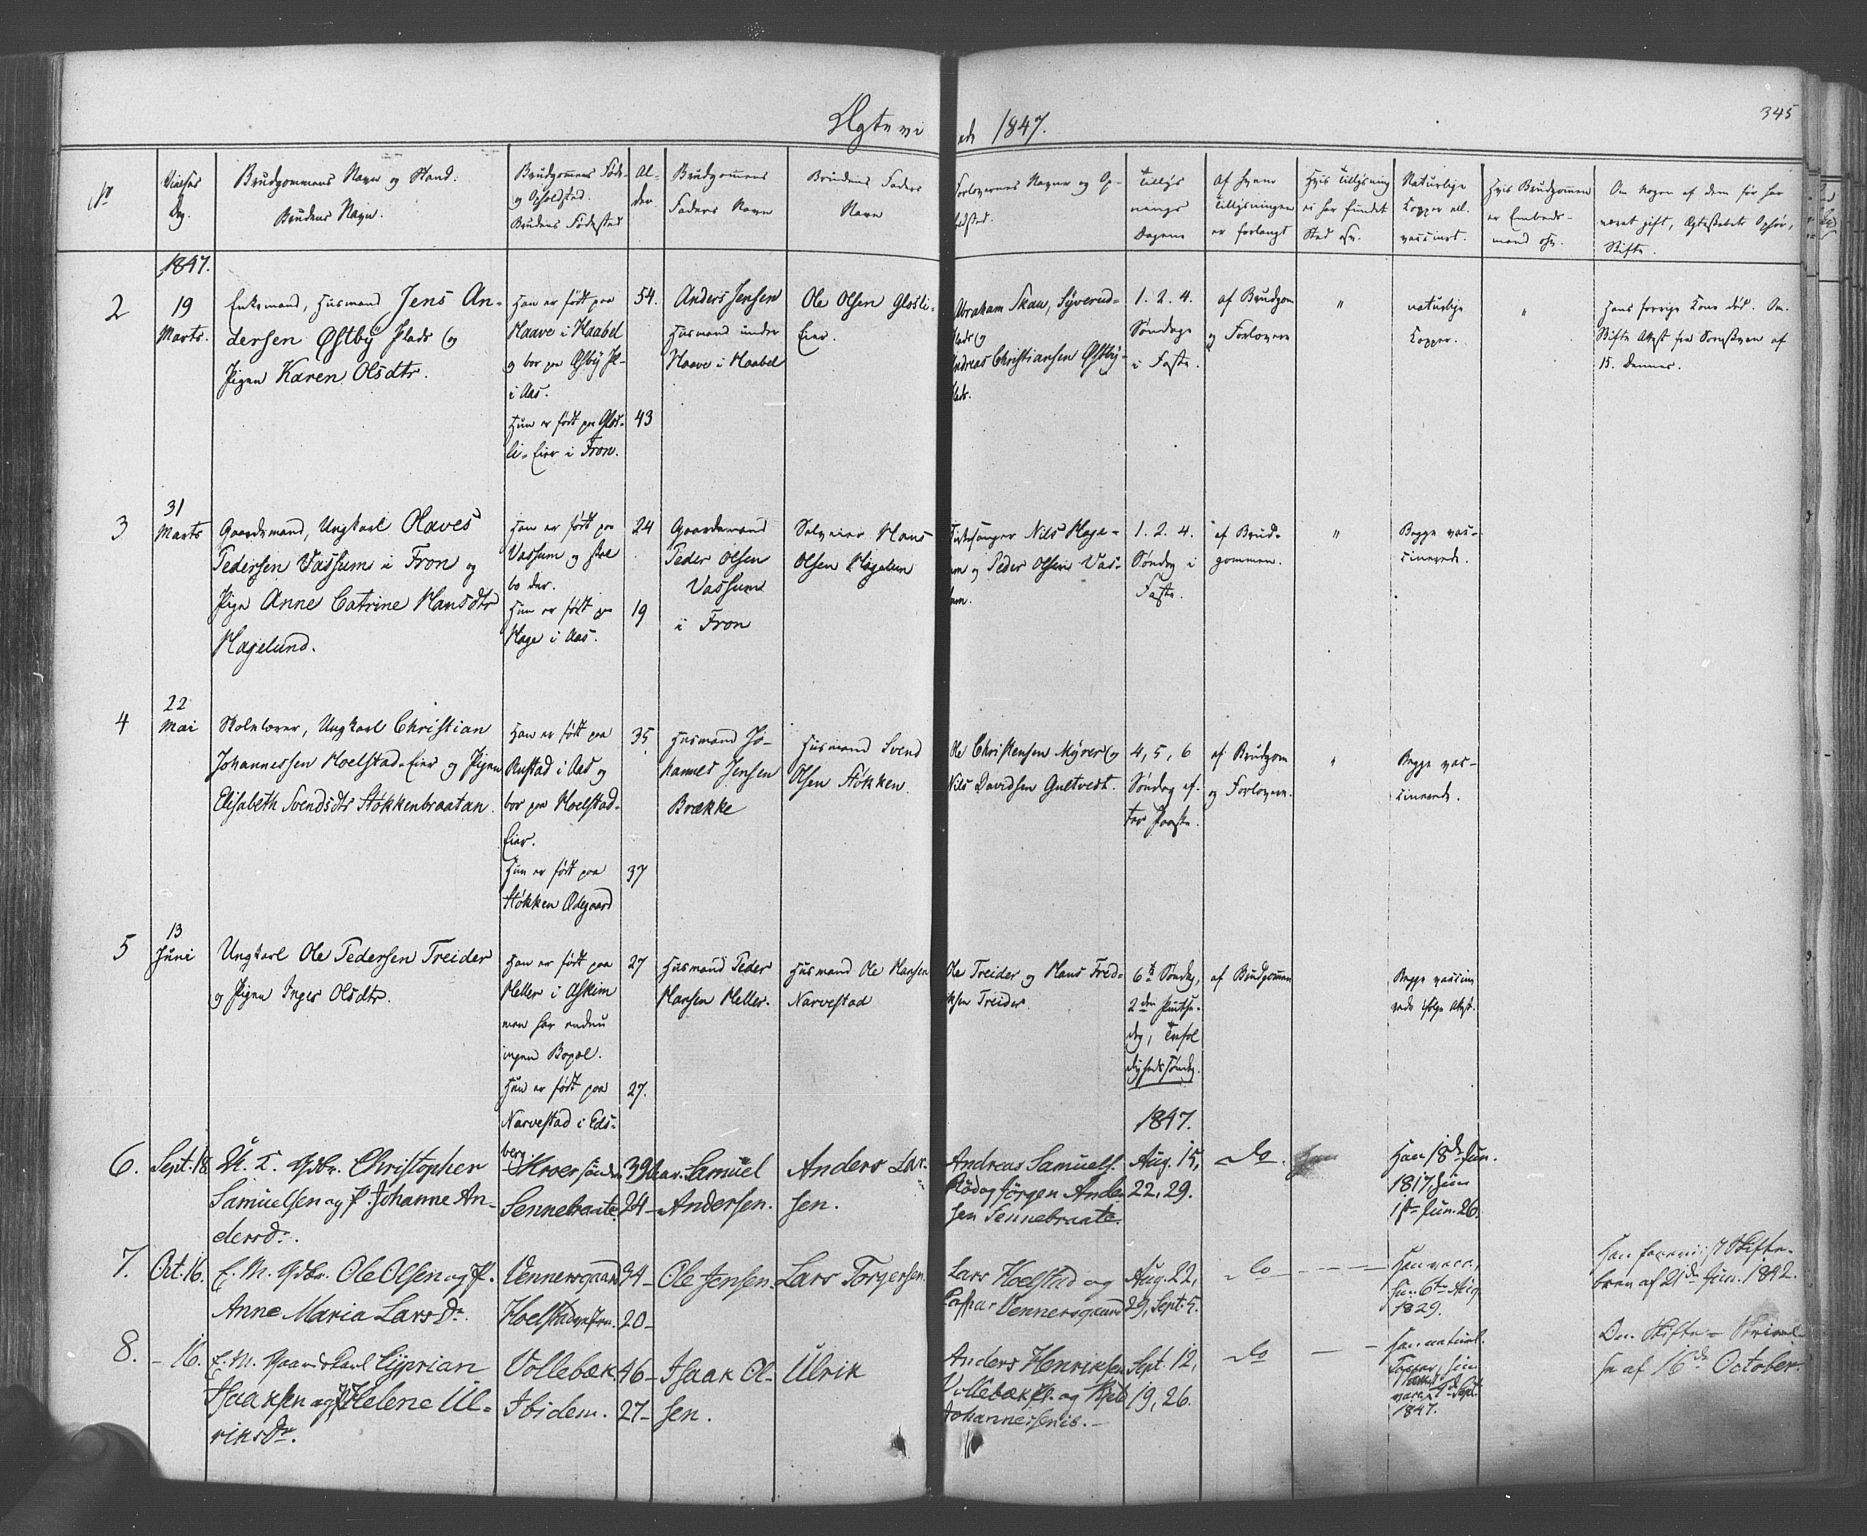 Ægtevi ede 1847.
345
No
Vielses Dag.
Brudgommens Navn og Stand.
Brudens Navn.
BrudgommensFøde-
og Opholdsted.
Brudens Fødested
Al-
der.
Brudgommens
Faders Navn
Brudens Faders
Navn
Forlovernes Navne og Op-
holdsted.
Tillys
nings
Dagene
Af hvem
Tillysningen
er forlangt
Hvis Tillysning
ei har fundet
Sted osv.
Naturlige
Kopper ell.
vaccineret.
Hvis Brudgommen
er Embeds-
mand osv.
Om nogen af dem før har
været gift, Ægteskabets Ophør,
Skifte.
1847.
2
19
Marts.
Enkemand, Husmand Jens An-
dersen Østby Plads og
Pigen Karen Olsdtr.
Han er født paa
Haave i Haabøl
og bor paa Østby Pl.
i Aas.
Hun er født paa Glos-
li-Eier i Fron.
54.
43
Anders Jensen
Husmand under
Haave i Haabel
Ole Olsen Glosli-
Eier.
Abraham Skau, Syverud-
Plads og
Andreas Christiansen Østby-
Plads.
1. 2. 4.
Søndage
i Faste.
af Brudgom
og Forlovere
"
naturlige
Kopper.
"
Hans forrige Kone død. Om
Skifte Attest fra Sorenskriveren af
15. dennes.
3
31
Marts
Gaardmand, Ungkarl Olaves
Pedersen Vassum i Fron og
Pige Anne Catrine Hansdtr
Hagelund.
Han er født paa
Vassum og skal
bo der.
Hun er født paa
Hage i Aas.
24
19
Gaardmand
Peder Olsen
Vassum
i Fron
Selveier Hans
Olsen Hagelun
Kirkesanger Nils Hage-
lun og Peder Olsen Vas-
sum.
1. 2. 4.
Søndag i
Faste.
af Brud-
gommen.
"
Begge vac-
cinerede.
4
22
Mai
Skolelærer, Ungkarl Christian
Johannessen Hoelstad-Eier og Pigen
Elisabeth Svendsdtr Støkkenbraatan.
Han er født paa
Rustad i Aas og
bor paa Hoelstad-
Eier.
Hun er født paa
Støkken Ødegaard
35
37
Husmand Jo-
hannes Jensen
Brække
Husmand Svend
Olsen Støkken.
Ole Christensen Myrer og
Nils Davidsen Gultvedt.
4, 5, 6
Søndag ef-
ter Paaske.
af Brudgom
og Forlovere.
"
Begge vac-
cinerede.
5
13
Juni
Ungkarl Ole Pedersen Treider
og Pigen Inger Olsdtr.
Han er født paa
Heller i Askim
men har endnu
ingen Bopæl.
Hun er født paa
Narvestad i Eds-
berg.
27
27.
Husmand Peder
Hansen Heller.
Husmand Ole Hansen
Narvestad
Ole Treider og Hans Fred-
riksen Treider.
6te Søndag,
2den Pintse-
dag, Trefol
dighedssøndag.
af Brudgommen
Begge vaccine
rede ifølge Attest.
1847.
6.
Sept. 18.
U. K. Gdbr. Christopher
Samuelsen og P. Johanne An-
dersd.
Kroer søndre
Sennebraate
39
24-
Samuel
Andersen.
Anders Lar-
sen.
Andreas Samuels.
Rød og Jørgen Ander
sen Sennebraate.
Aug. 15,
22, 29.
Do
Han 18de Jun.
1817, Hun
1ste Jun. 26.
7.
Oct. 16.
E. M. Gdbr. Ole Olsen og P.
Anne Maria Larsdr.
Vennersgaard
Hoelstad
34-
20-
Ole Jensen.
Lars Torgersen.
Lars Hoelstad og
Vennersgaard
Aug. 22,
29, Sept. 5.
Do
Han vacc.
Hun 6te Aug.
1829.
Han foreviist Skifte-
brev af 21de Jun. 1842.
8.
- 16.
E. M. Gaardkarl Cyprian
Isaaksen og P. Helene Ul-
riksdr.
Vollebæk
Ibidem.
46-
27-
Isaak Ol-
sen.
Ulrik
Anders Henriksen
Vollebæk Pl. og
Johannessen ib.-
Sept. 12,
19, 26.
Do
Han naturl.
Kopper, Hun
1847.
Om Skifte-
se af 16de October.